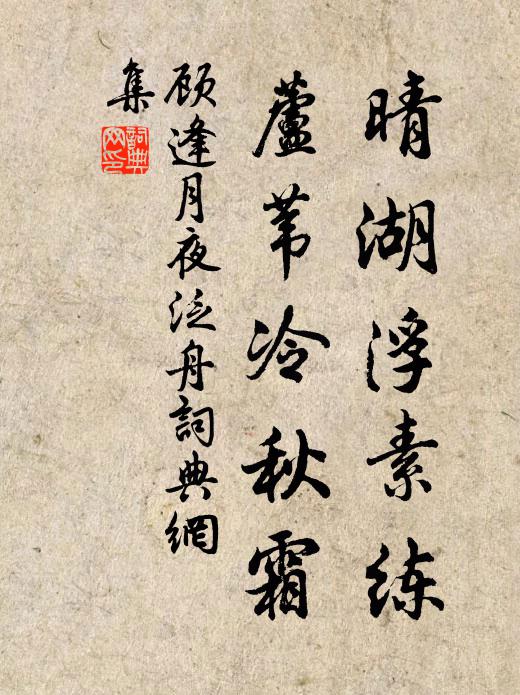 晴湖浮素練
蘆葦冷秋霜
顧逢月夜泛舟詞典網
集
詞典
网印